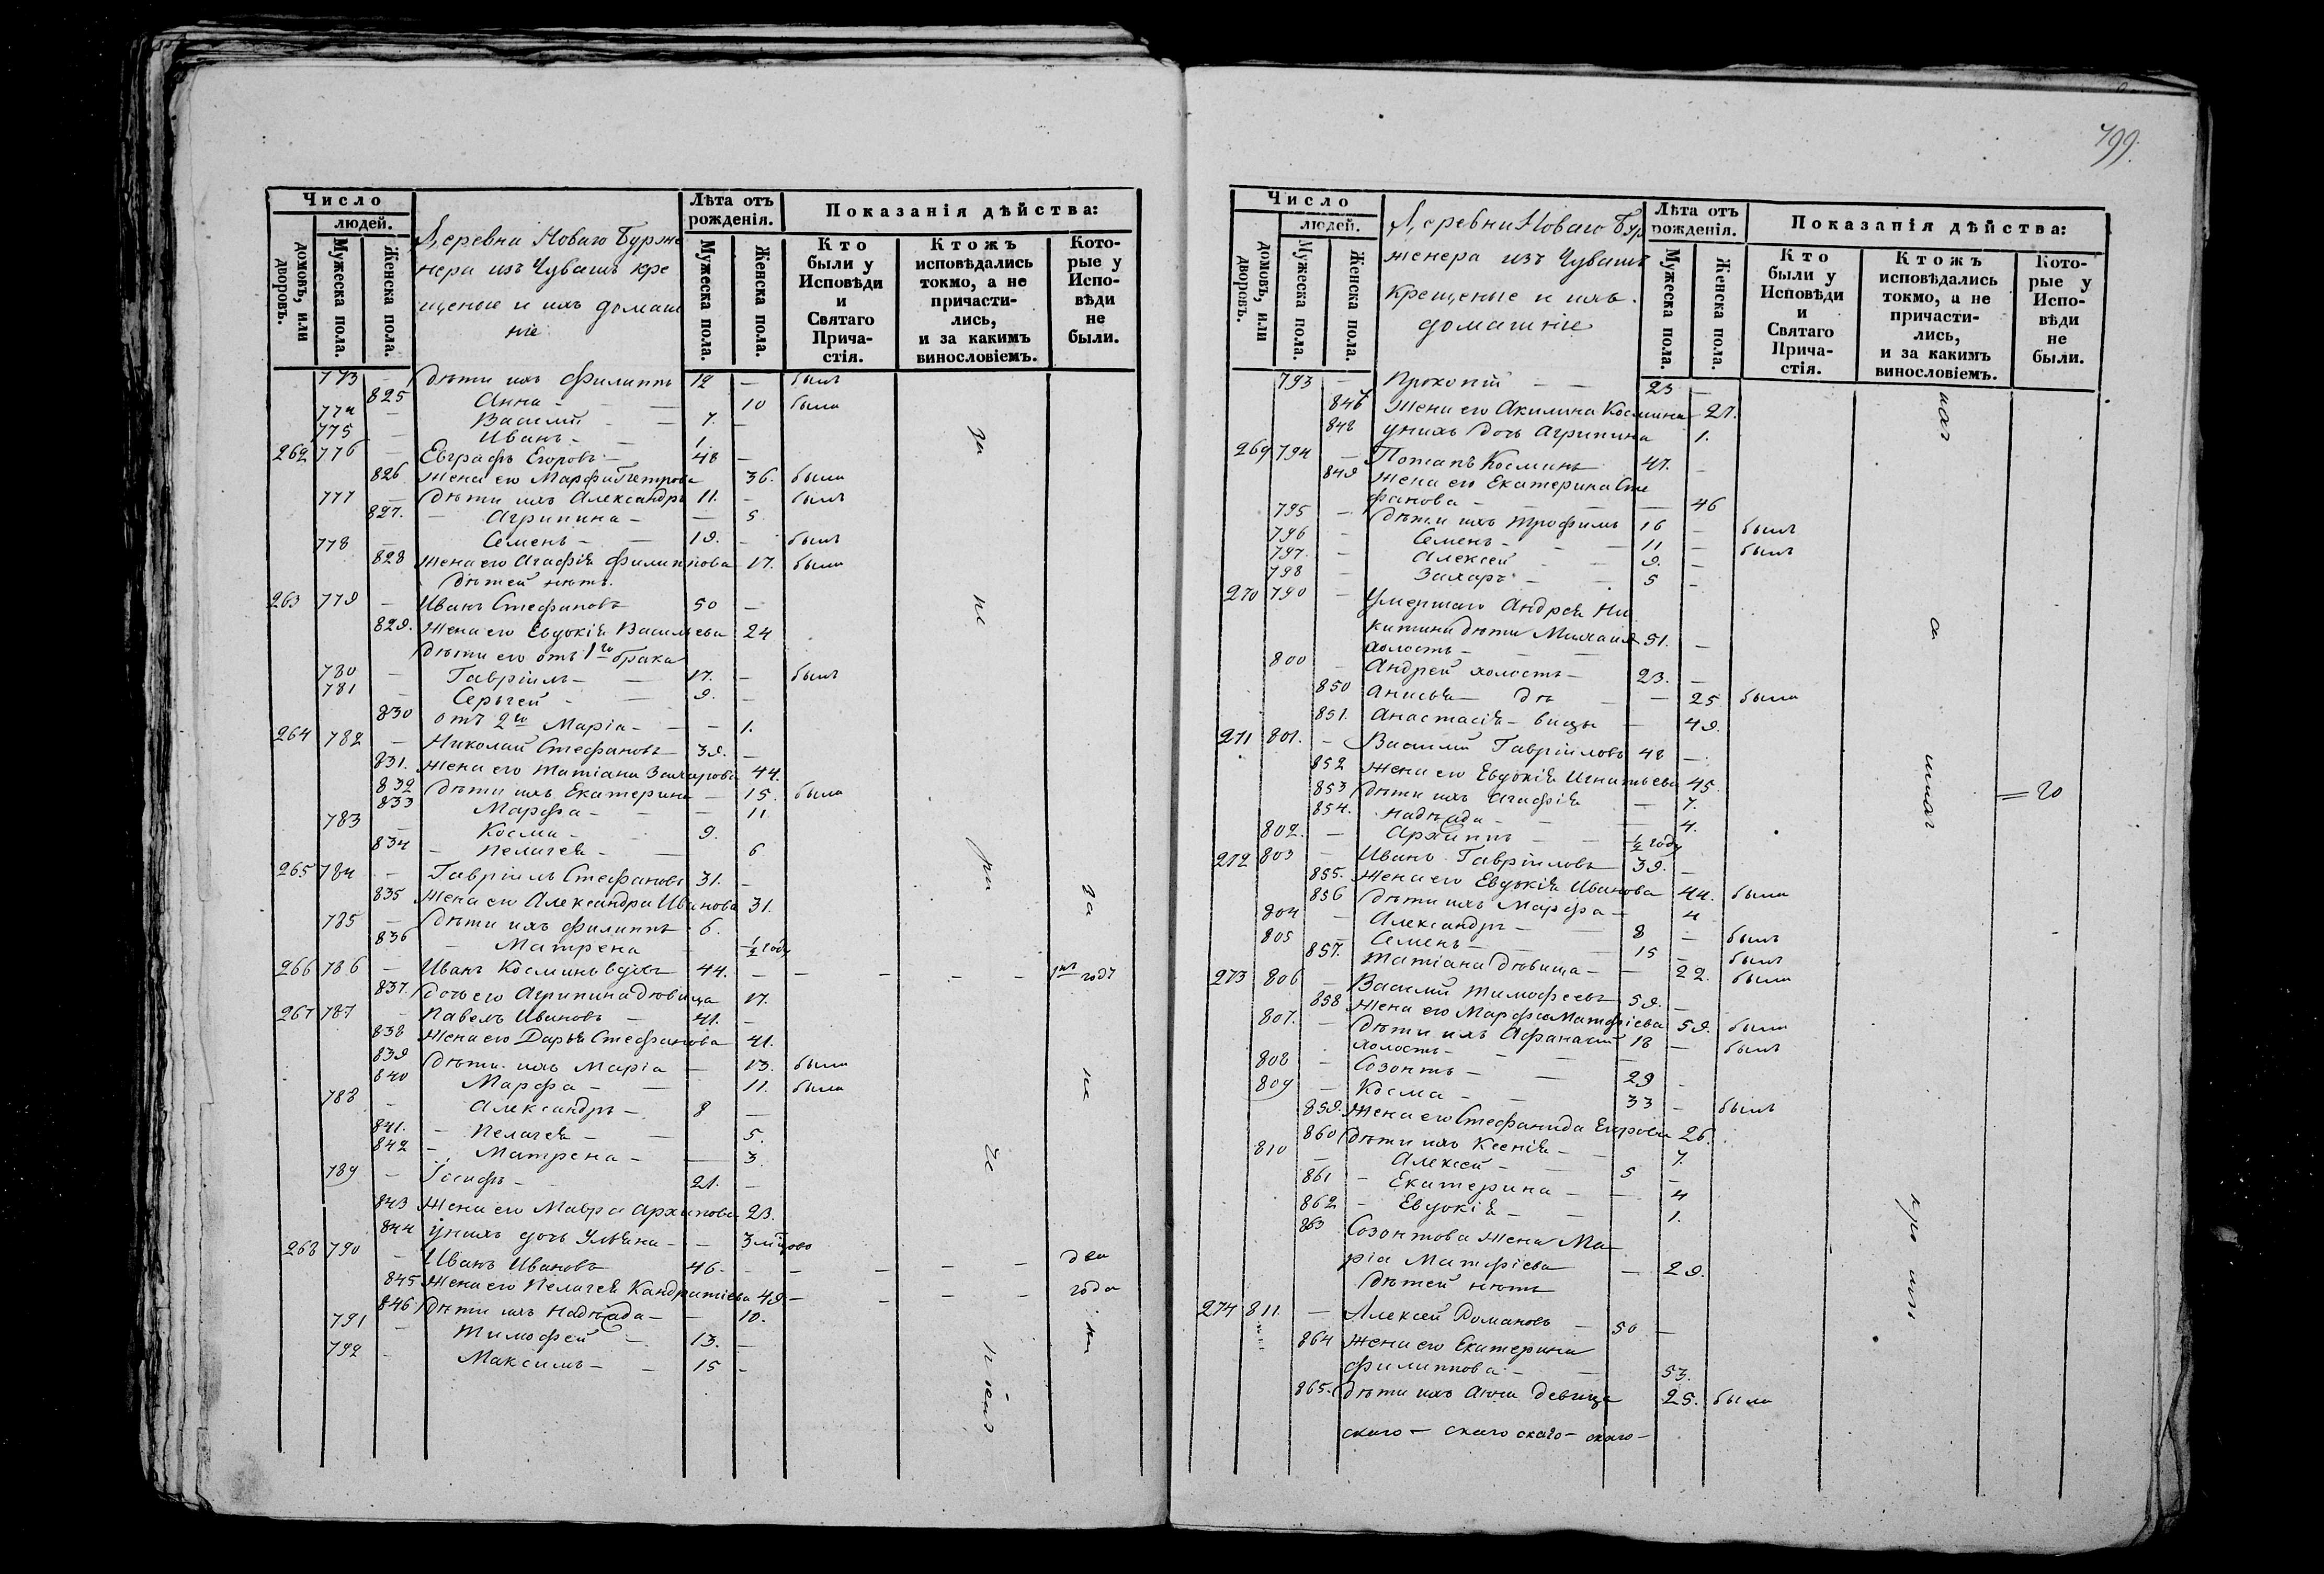 Число
людей.
домовъ, или дворовъ.
Мужеска пола.
Женска пола.
Деревни Новаго Бурже
нера изъ Чувашъ кре
щеные и ихъ домаш
ніе
Лѣта отъ рожденія.
Мужеска пола.
Женска пола.
Показанія дѣйства:
Кто были у Исповѣди и Святаго Прича-стія.
Ктожъ исповѣдались токмо, а не причасти-лись, и за какимъ винословіемъ.
Кото-рые у Испо-вѣди не были.
773 — Дѣти ихъ Филиппъ 12 — былъ
825 Анна — — 10 была
774 — Василій — 7. —
775 — Иванъ — 1.
262 776 — Евграфъ Егоровъ — 48 —
826 Жена его Марфа Петрова 36. была
777 — Дѣти ихъ Александръ 11. — былъ
827. — Агрипина — — 5.
778 — Семенъ — 19. — былъ
828 Жена его Агафія Филиппова 17. была
Дѣтей нѣтъ.
263 779 — Иванъ Стефановъ 50 —
829. Жена его Евдокія Васильева 24
Дѣти его отъ 1го брака
780 — Гавріилъ — 17. — былъ
781 — Сергей — 9. —
830 отъ 2го Марія — — 1.
264 782 — Николай Стефановъ 39. —
831. Жена его Татіана Захарова 44.
832 Дѣти ихъ Екатерина — 15. была
833 Марфа — — 11.
783 — Косма — 9.
834 — Пелагея — 6
265 784 — Гавріилъ Стефановъ 31. —
835 Жена его Александра Иванова 31.
785 — Дѣти ихъ Филиппъ 6.
836 — Матрена — ½ году
266 786 — Иванъ Косминъ вдовъ 44. — — — — — годъ
837. Дочь его Агрипина Дѣвица 17.
267 787 — Павелъ Ивановъ — 41. —
838 Жена его Дарья Стефанова 41.
839 Дѣти ихъ Марія — 13. была
840 Марфа — — 11. была
788 — Александръ — 8 —
841. — Пелагея — — 5.
842 — Матрена — — 3.
789 — Іосифъ — 21. —
843 Жена его Мавра Архипова 23.
844 у нихъ дочь Ульяна — — 3
268 790 — Иванъ Ивановъ 46. — — — — — два
845 Жена его Пелагея Кандратіева 49 — — — — года
846 Дѣти ихъ Надежда — — 10.
791 — Тимофей — 13. —
792 — Максимъ — — 15 —
за
не
да
не
799.
Число
людей.
домовъ, или дворовъ.
Мужеска пола.
Женска пола.
Деревни Новаго Бур
женера изъ Чувашъ
крещеные и ихъ
домашніе
Лѣта отъ рожденія.
Мужеска пола.
Женска пола.
Показанія дѣйства:
Кто были у Исповѣди и Святаго Прича-стія.
Ктожъ исповѣдались токмо, а не причасти-лись, и за какимъ винословіемъ.
Кото-рые у Испо-вѣди не были.
793 — Прокопій — — 23 —
Жена его Акилина Космина — 27.
848 у нихъ дочь Агрипина 1.
269 794 — Потапъ Косминъ 47. —
849 Жена его Екатерина Сте
фанова — — 46
795 — Дѣти ихъ Трофимъ 16 — былъ
796 — Семенъ — — 11 — былъ
797. — Алексей — 9. —
798 — Захаръ — — 5 —
270 790 — Умершаго Андрея Ни
китина дѣти Михаилъ 51. —
холостъ —
800 — Андрей холостъ — 23. —
850 Анисья — дѣ — 25 была
851. Анастасія — вицы — 49.
271 801. — Василій Гавріиловъ 48 —
852 Жена его Евдокія Игнатьева 45.
853 Дѣти ихъ Агафія — 7.
854. Надежда — — 4.
802. — Архиппъ — ½ году
272 803 — Иванъ Гавріиловъ 39. —
855. Жена его Евдокія Иванова 44. была
856 Дѣти ихъ Марфа — 4
804 — Александръ — 8 — былъ
805 — Семенъ — 15 — былъ
857. Татіана дѣвица — — 22. была
273 806 — Василій Тимофеевъ 59. —
858 Жена его Марфа Матфіева 59. была
807. — Дѣти ихъ Афанасій 18 — былъ
холостъ — — —
808 — Созонтъ — — 29 —
809 — Косма — 33 — былъ
859. Жена его Стефанида Егорова 26.
860 Дѣти ихъ Ксенія — — 7.
810 — Алексей — 5 —
861 — Екатерина — — 4
862 — Евдокія — — 1.
863 Созонтова жена Ма-
рія Матфіева — 29.
Дѣтей нѣтъ
274 811. — Алексей Романовъ — 50 —
864 Жена его Екатерина
Филиппова — — 53.
865. Дѣти ихъ Анна девица 25. была
скаго — скаго скаго — скаго —
= 20